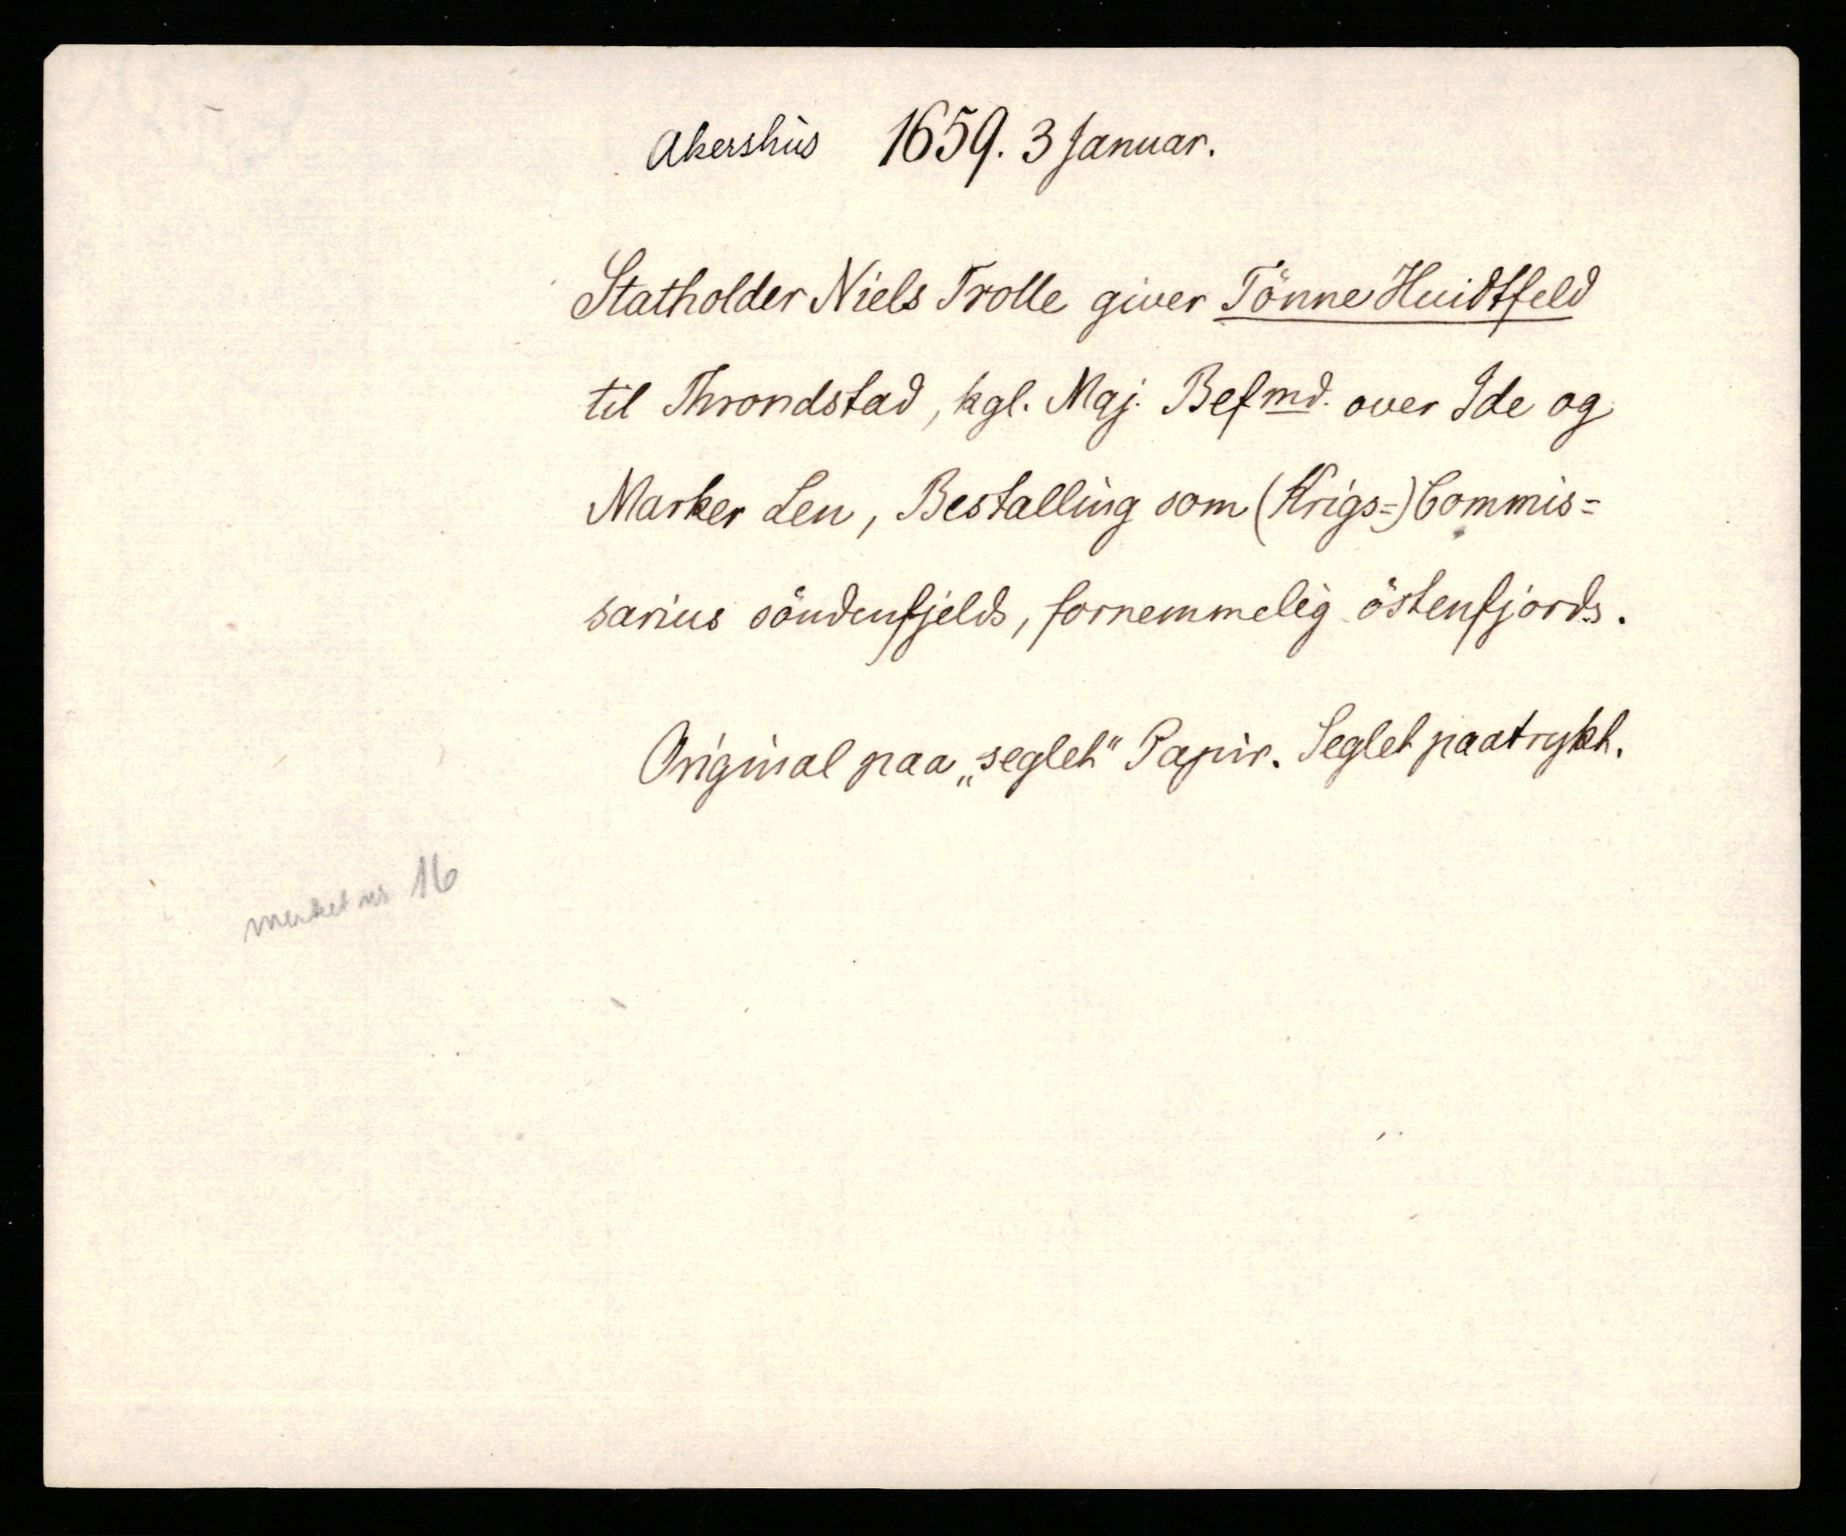 Akershus 1659. 3 Januar.
Statholder Niels Trolle giver Tönne Huidtfeld
til Throndstad, kgl. Maj. Befmd. over Ide og
Marker Len, Bestalling som (Krigs=) Commis=
sarius söndenfjelds, fornemmelig östenfjords.
Original paa „seglet" Papir. Seglet paatrykt.
merket nr 16